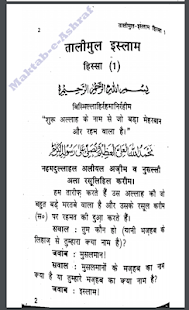 2 तालीमुल-इस्लाम हिस्सा १
Maktab-e-Ashraf
तालीमुल इस्लाम
हिस्सा (1)
بسم الله الرحمن الرحيم
बिस्मिल्लाहिर्रहमानिर्रहीम
“शुरू अल्लाह के नाम से जो बड़ा मेहरबान
और रहम वाला है।”
نحمد الله العلي العظيم ونصلي على رسوله الكريم
नहमदुल्लाहल अलीयल अज़ीम व नुसल्ली
अला रसूलिहिल करीम।
हम तारीफ़ करते हैं उस अल्लाह की जो
बहुत बड़े मरतबे वाला है और उसके रसूल करीम
(स०) पर रहमत की दुआ करते हैं।
सवाल : तुम कौन हो (यानी मज़हब के
लिहाज़ से तुम्हारा क्या नाम है?)
जवाब : मुसलमान!
सवाल : मुसलमानों के मज़हब का नाम
क्या है या तुम्हारे मज़हब का क्या नाम है?
जवाब : इस्लाम!
2